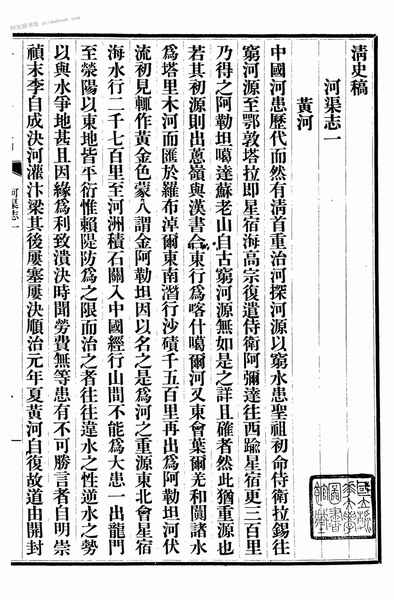 清史稿
河渠志一
黃河
中國河患歷代而然有清首重治河探河源以窮水患聖祖初命侍衛拉錫往
窮河源至鄂敦塔拉即星宿海高宗復遣侍衛阿彌達往西踰星宿更三百里
乃得之阿勒坦噶達蘇老山自古窮河源無如是之詳且確者然此猶重源也
若其初源則出蔥嶺與漢書合東行爲喀什噶爾河又東會葉爾羌和闐諸水
爲塔里木河而匯於羅布淖爾東南潛行沙磧千五百里再出爲阿勒坦河伏
流初見輒作黃金色蒙人謂金阿勒坦因以名之是爲河之重源東北會星宿
海水行二千七百里至河洲積石關入中國經行山間不能爲大患一出龍門
至滎陽以東地皆平衍惟賴隄防爲之限而治之者往往違水之性逆水之勢
以與水爭地甚且因緣爲利致潰決時聞勞費無等患有不可勝言者自明崇
禎末李自成決河灌汴梁其後屢塞屢決順治元年夏黃河自復故道由開封
河渠志一
一